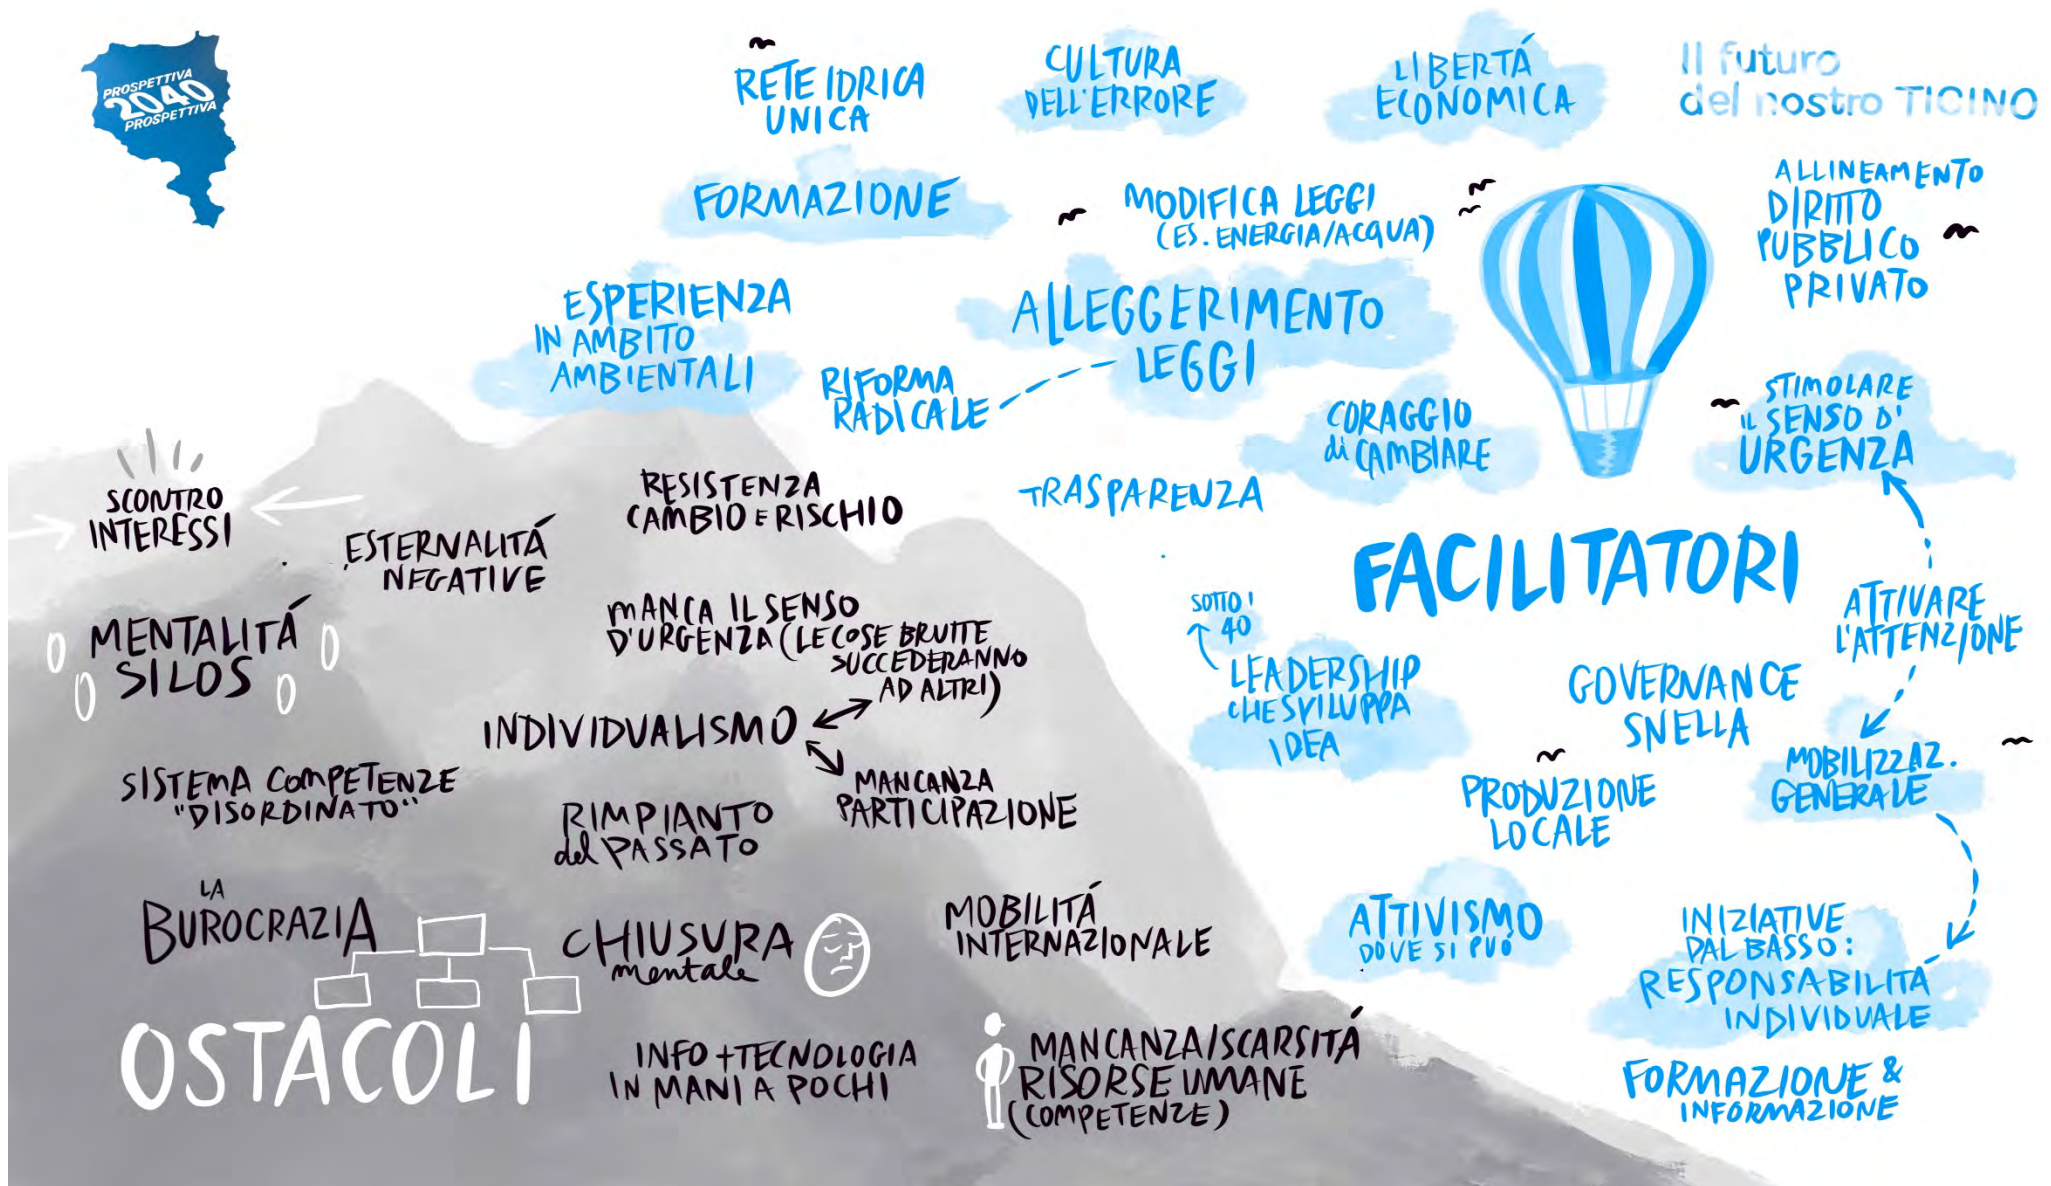 PROSPETTIVA
2040
PROSPETTIVA
RETE IDRICA
UNICA
CULTURA
DELL'ERRORE
LIBERTÁ
ECONOMICA
Il futuro
del nostro TICINO
FORMAZIONE
MODIFICA LEGGI
(ES. ENERGIA/ACQUA)
ALLINEAMENTO
DIRITTO
PUBBLICO
PRIVATO
ESPERIENZA
IN AMBITO
AMBIENTALI
ALLEGGERIMENTO
LEGGI
RIFORMA
RADICALE
CORAGGIO
di CAMBIARE
STIMOLARE
IL SENSO D'
URGENZA
TRASPARENZA
FACILITATORI
ATTIVARE
L'ATTENZIONE
SOTTO I
40
LEADERSHIP
CHE SVILUPPA
IDEA
GOVERNANCE
SNELLA
MOBILIZZAZ.
GENERALE
PRODUZIONE
LOCALE
ATTIVISMO
DOVE SI PUÓ
INIZIATIVE
DAL BASSO:
RESPONSABILITÁ
INDIVIDUALE
FORMAZIONE &
INFORMAZIONE
SCONTRO
INTERESSI
ESTERNALITÁ
NEGATIVE
RESISTENZA
CAMBIO E RISCHIO
MENTALITÁ
SILOS
MANCA IL SENSO
D'URGENZA (LE COSE BRUTTE
SUCCEDERANNO
AD ALTRI)
INDIVIDUALISMO
MANCANZA
PARTICIPAZIONE
SISTEMA COMPETENZE
"DISORDINATO"
RIMPIANTO
del PASSATO
LA
BUROCRAZIA
CHIUSURA
mentale
MOBILITÁ
INTERNAZIONALE
OSTACOLI
INFO + TECNOLOGIA
IN MANI A POCHI
MANCANZA/SCARSITÁ
RISORSE UMANE
(COMPETENZE)